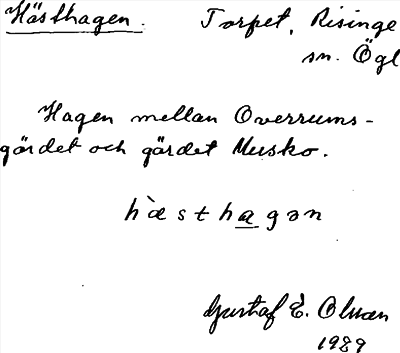 Hästhagen. Torpet, Risinge
sn. Ögl
Hagen mellan Overrums-
gärdet och gärdet Musko.
hæ̀sthagən
Gustaf E. Olman
1929